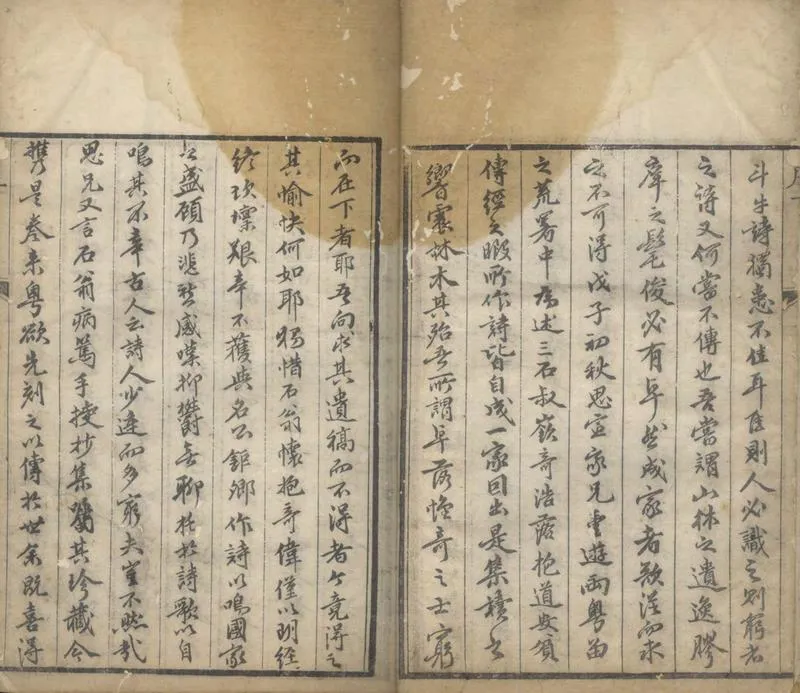 斗牛詩獨患不佳耳佳則人必識之則窮者
之詩又何嘗不傳也吾嘗謂山林之遺逸膠
庠之髦俊必有卓然成家者欲從而求
之不可得戊子初秋思宣家兄遊兩粵留
之荒署中為述三石叔嶔奇浩落抱道安貧
傳經之暇所作詩皆自成一家因出是集讀之
響震林木其殆吾所謂卓落恢奇之士窮
而在下者耶吾向求其遺稿而不得者今竟得之
其愉快何如耶獨惜石翁懷抱奇偉僅以明經
終坎壈艱辛不獲與名公鉅卿作詩以鳴國家
之盛顧乃悲愁感嘆抑鬱無聊托於詩歌以自
鳴其不幸古人云詩人少達而多窮夫豈不然哉
思兄又言石翁病篤手授抄集囑其珍藏今
攜是卷來粵欲先刻之以傳於世余既喜得